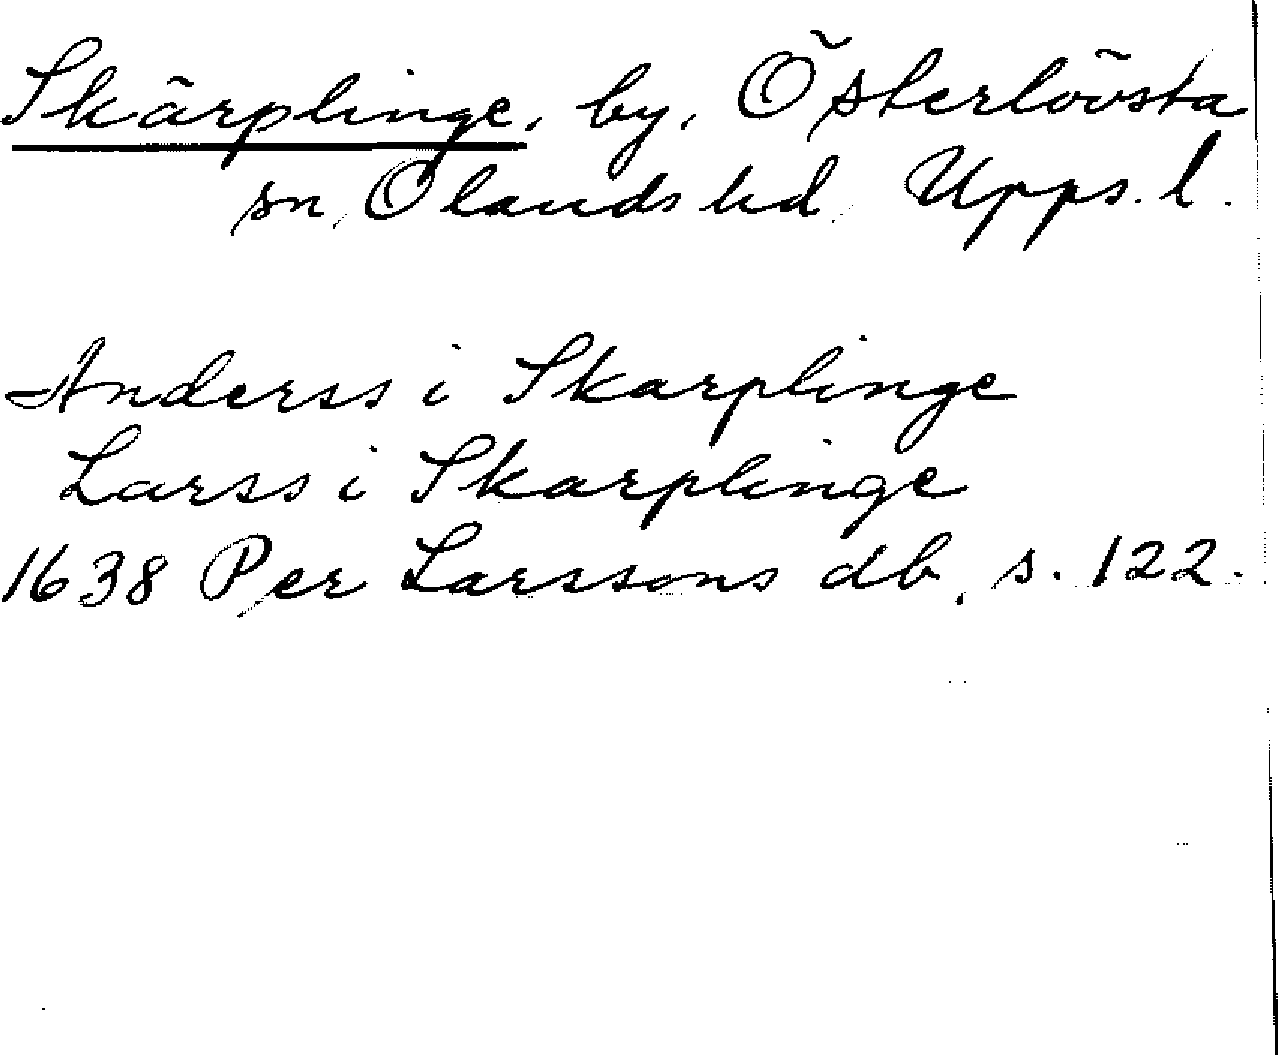 Skärplinge, by, Österlövsta
sn, Olands hd Upps. l.
Anderss i Skarplinge
Larss i Skarplinge
1638 Per Larssons db, s. 122.